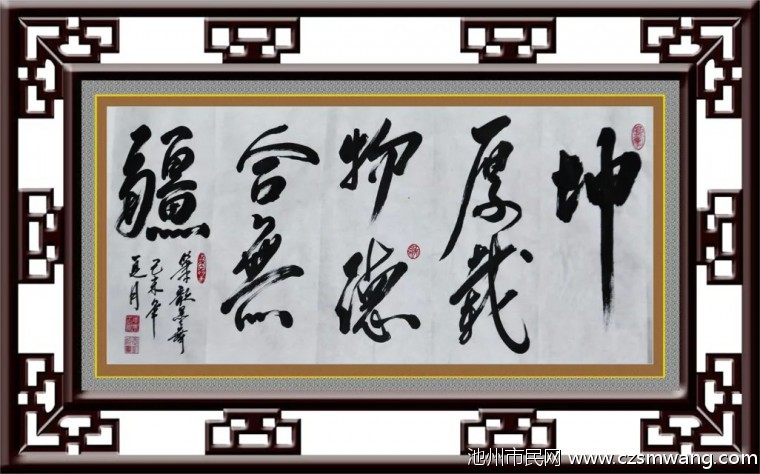 坤
厚載
物德
合無
疆
乙未年
池州市民网 www.czsmwang.com